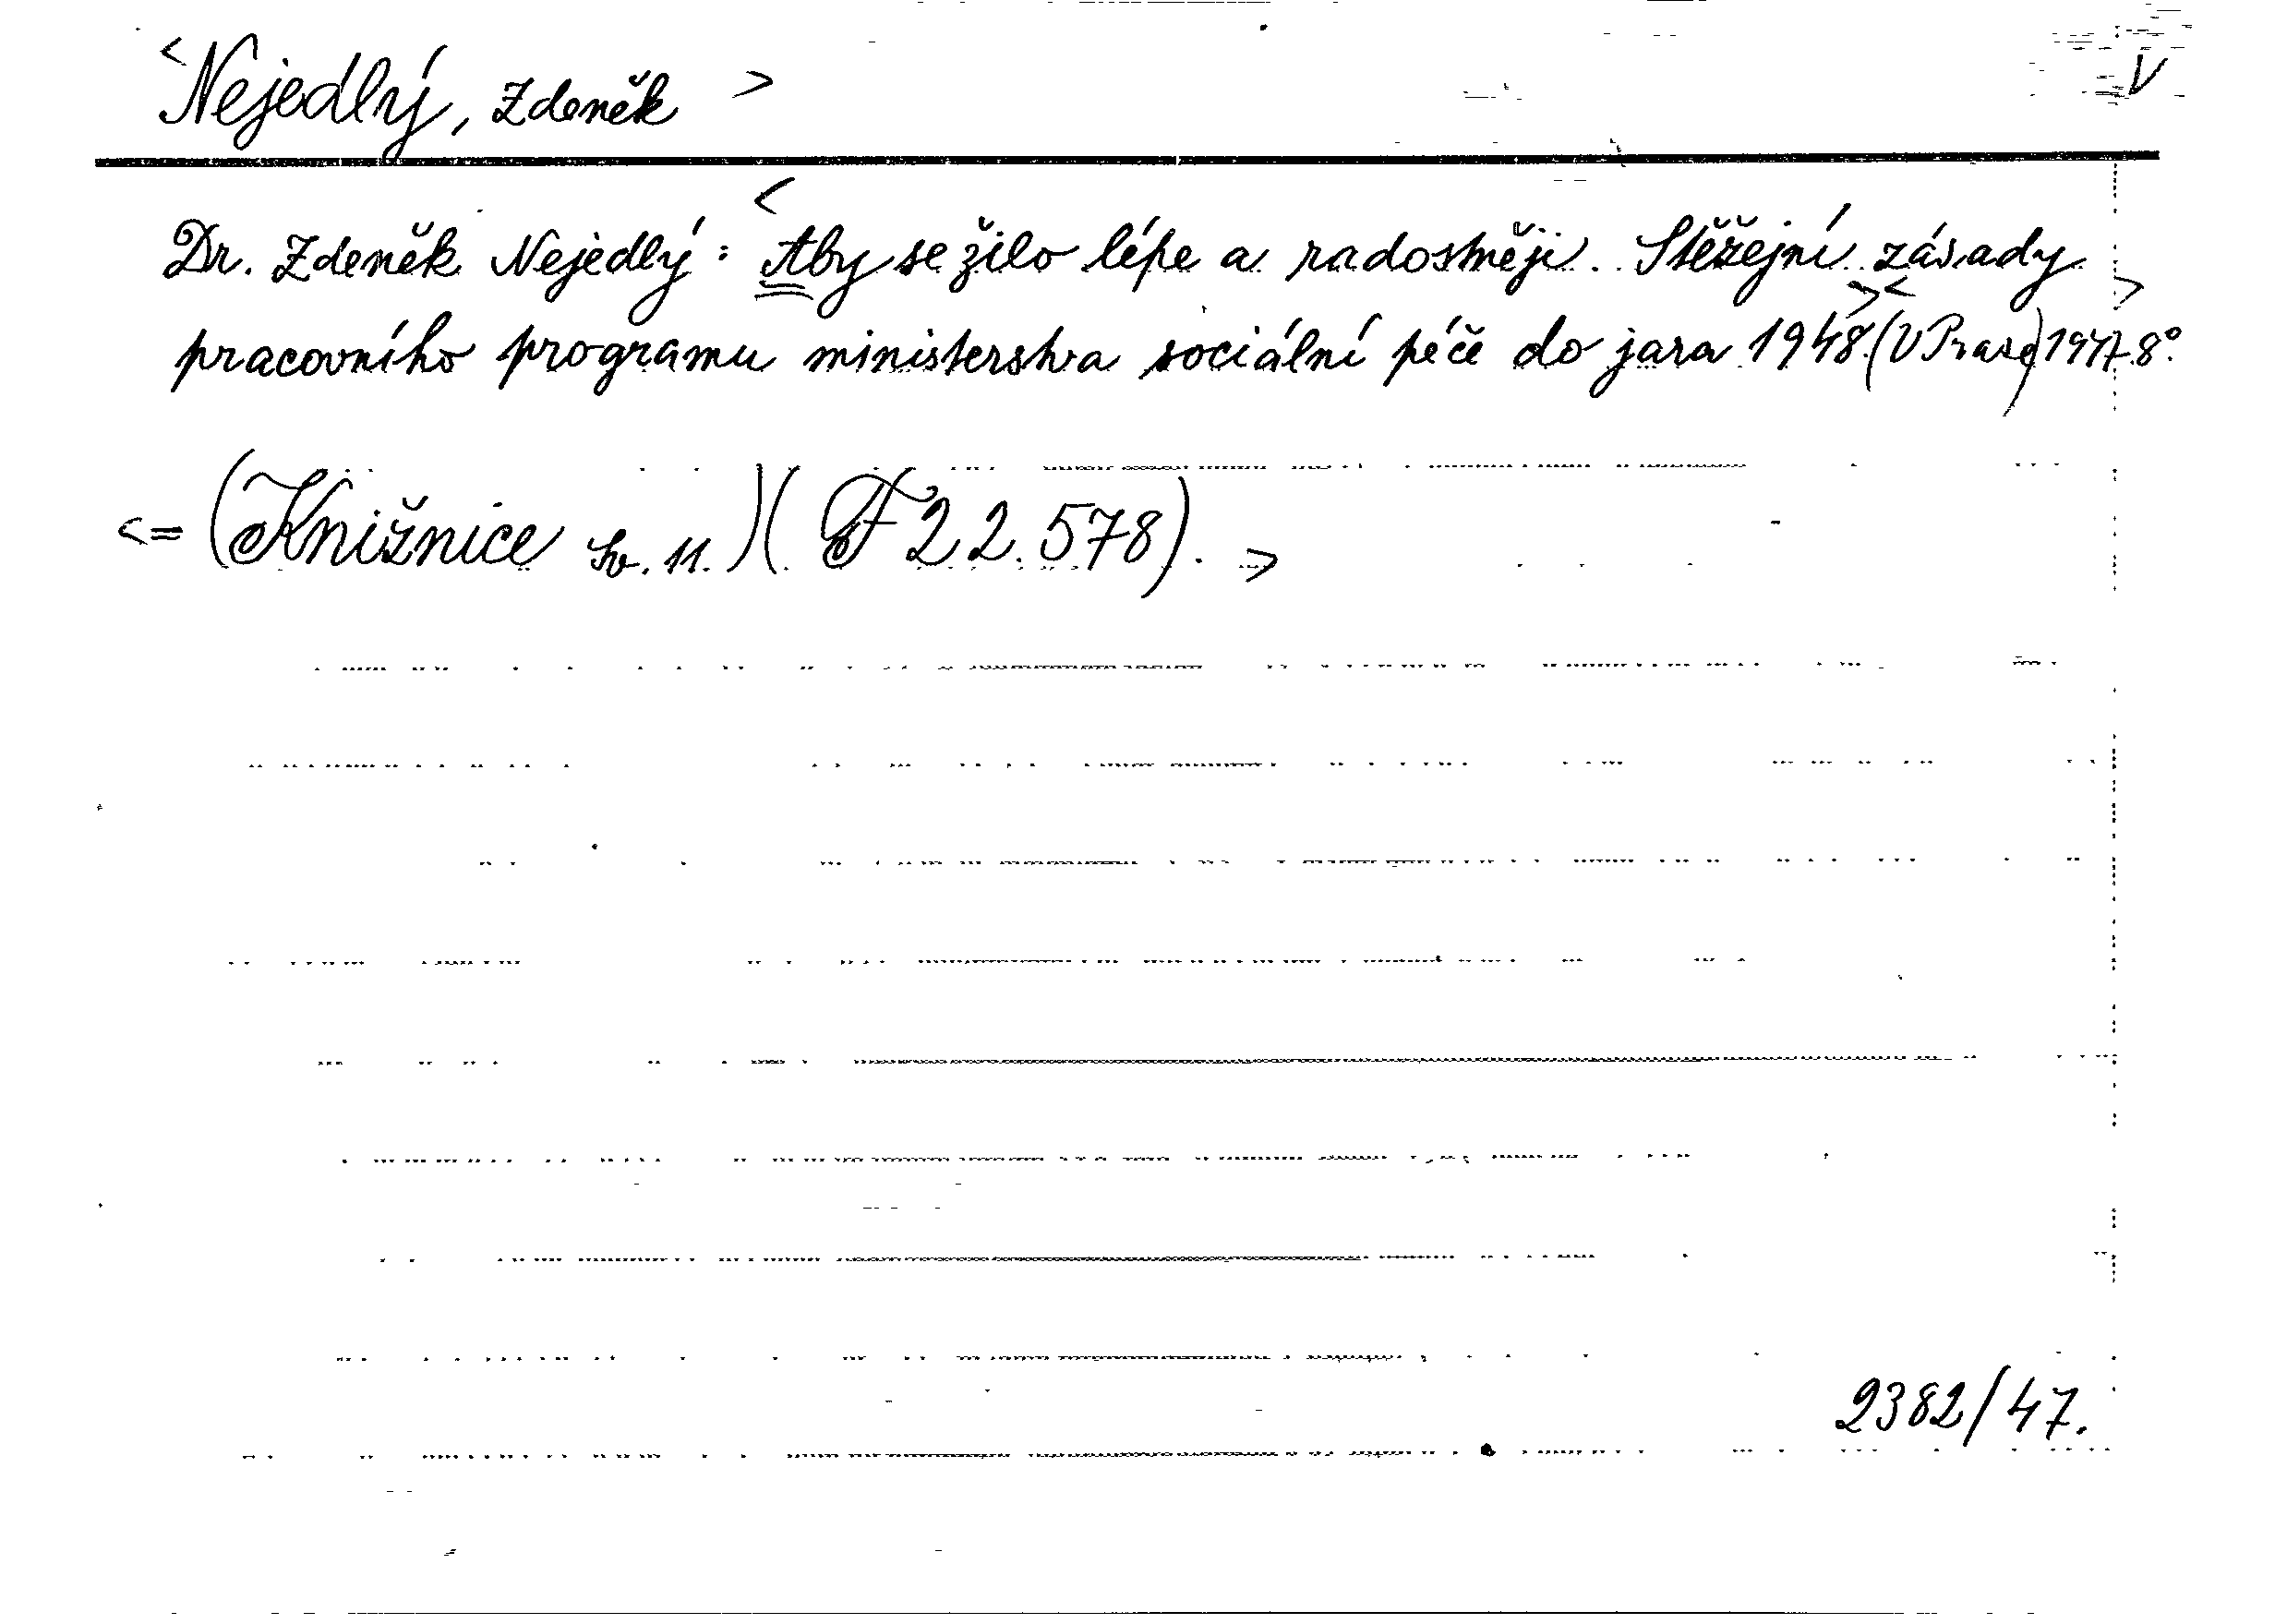 <Nejedlý, Zdeněk> V
Dr. Zdeněk Nejedlý: <Aby se žilo lépe a radostněji. Stěžejní zásady>
pracovního programu ministerstva sociální péče do jara 1948.><(V Praze) 1947. 8°.
<= (Knižnice sv. 11.) (F 22.578). >
2382/47.